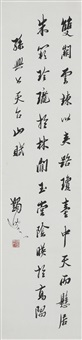 雙闕雲竦以夾路瓊臺中天而懸居
朱闕玲瓏於林間玉堂陰映於高隅
孫興公天台山賦